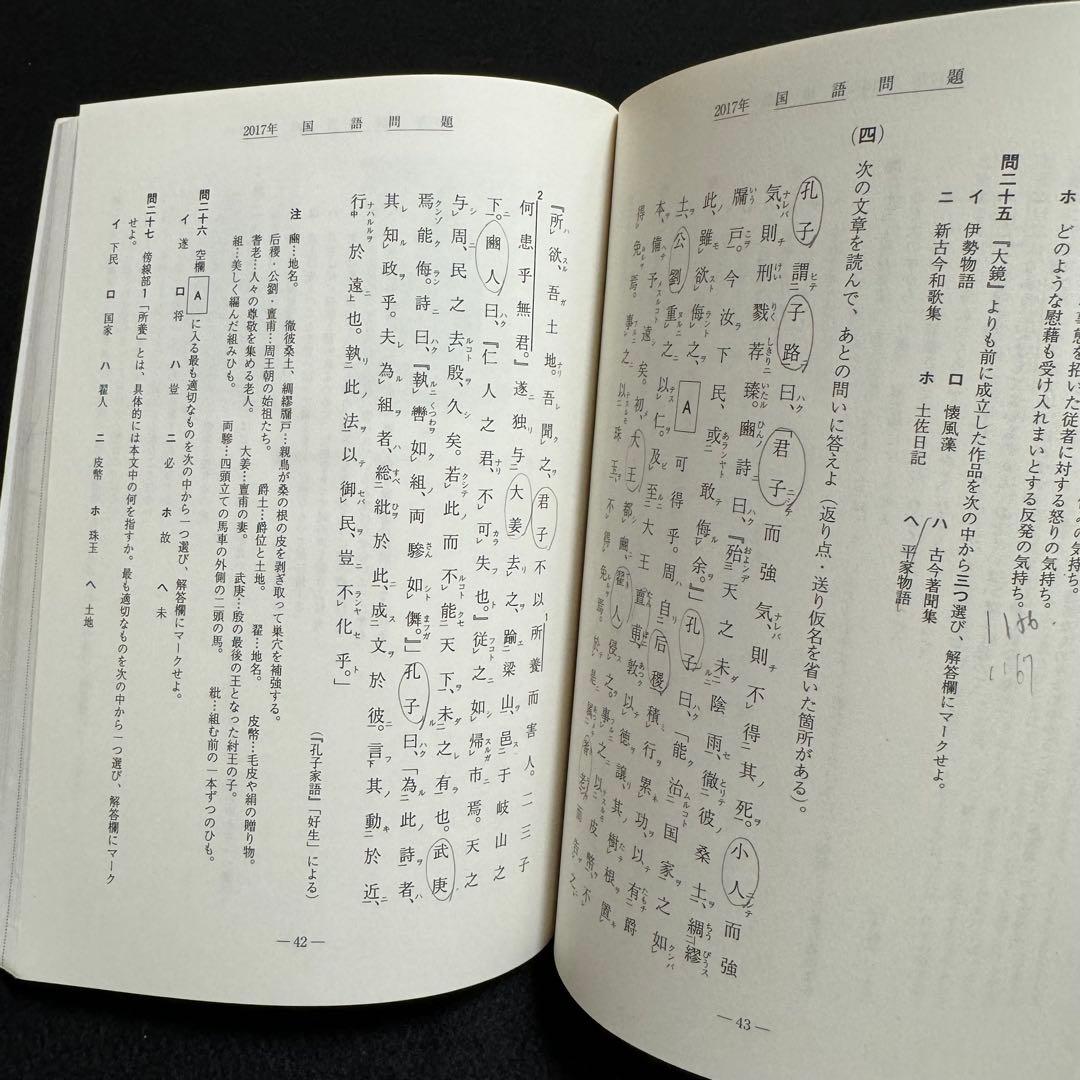 2017年 国語問題
ホ どのような慰藉も受け入れまいとする反発の気持ち。
問二十五 『大鏡』よりも前に成立した作品を次の中から三つ選び、解答欄にマークせよ。
イ 伊勢物語 ロ 懐風藻 ハ 古今著聞集
ニ 新古今和歌集 ホ 土佐日記 ヘ 平家物語
1186.
1167
(四) 次の文章を読んで、あとの問いに答えよ(返り点・送り仮名を省いた箇所がある)。
孔子謂子路曰、「君子而強気、則不得其死。小人而強
気、則刑戮荐臻。豳詩曰、『殆天之未陰雨、徹彼桑土、綢繆
牖戸。今汝下民、或敢侮余。』孔子曰、「能治国家之如
此、雖欲侮之、A可得乎。周自后稷積行累功、以有爵
土、公劉重之以仁。及至大王亶甫、敦以徳譲、其樹根置
本、備予遠矣。初、大王都豳、翟人侵之。事之以皮幣、不
得免焉。事之以珠玉、不得免焉。於是属耆老而告之、
―43―
2017年 国語問題
『所欲吾土地。吾聞之、君子不以所養而害人。二三子
何患乎無君。』遂独与大姜去之、踰梁山、邑于岐山之
下。豳人曰、『仁人之君、不可失也。』従之如帰市焉。天之
与周、民之去殷久矣。若此而不能天下、未之有也。武庚
焉能侮。詩曰、『執轡如組、両驂如儛。』孔子曰、「為此詩者、
其知政乎。夫為組者、総紕於此、成文於彼。言其動於近、
行於遠也。執此法以御民、豈不化乎。」
(『孔子家語』「好生」による)
注 豳…地名。 徹彼桑土、綢繆牖戸…親鳥が桑の根の皮を剥ぎ取って巣穴を補強する。
后稷・公劉・亶甫…周王朝の始祖たち。 爵土…爵位と土地。 翟…地名。 皮幣…毛皮や絹の贈り物。
耆老…人々の尊敬を集める老人。 大姜…亶甫の妻。 武庚…殷の最後の王となった紂王の子。
組…美しく編んだ組みひも。 両驂…四頭立ての馬車の外側の二頭の馬。 紕…組む前の一本ずつのひも。
問二十六 空欄 A に入る最も適切なものを次の中から一つ選び、解答欄にマークせよ。
イ 遂 ロ 将 ハ 豈 ニ 必 ホ 故 ヘ 未
問二十七 傍線部1「所養」とは、具体的には本文中の何を指すか。最も適切なものを次の中から一つ選び、解答欄にマーク
せよ。
イ 下民 ロ 国家 ハ 翟人 ニ 皮幣 ホ 珠玉 ヘ 土地
―42―